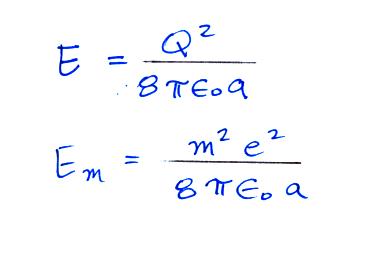 E = Q² / 8πε₀a
Eₘ = m² e² / 8πε₀ a